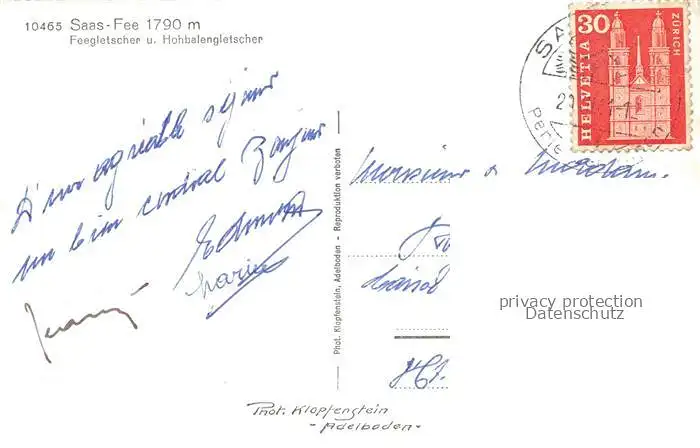 10465 Saas-Fee 1790 m
Feegletscher u. Hohbalengletscher
D'un agréable séjour
un bien cordial Bonjour
Edmond
Marie
Phot. Klopfenstein, Adelboden - Reproduktion verboten
30
HELVETIA
ZÜRICH
Monsieur & Madame
privacy protection
Datenschutz
Phot. Klopfenstein
- Adelboden -